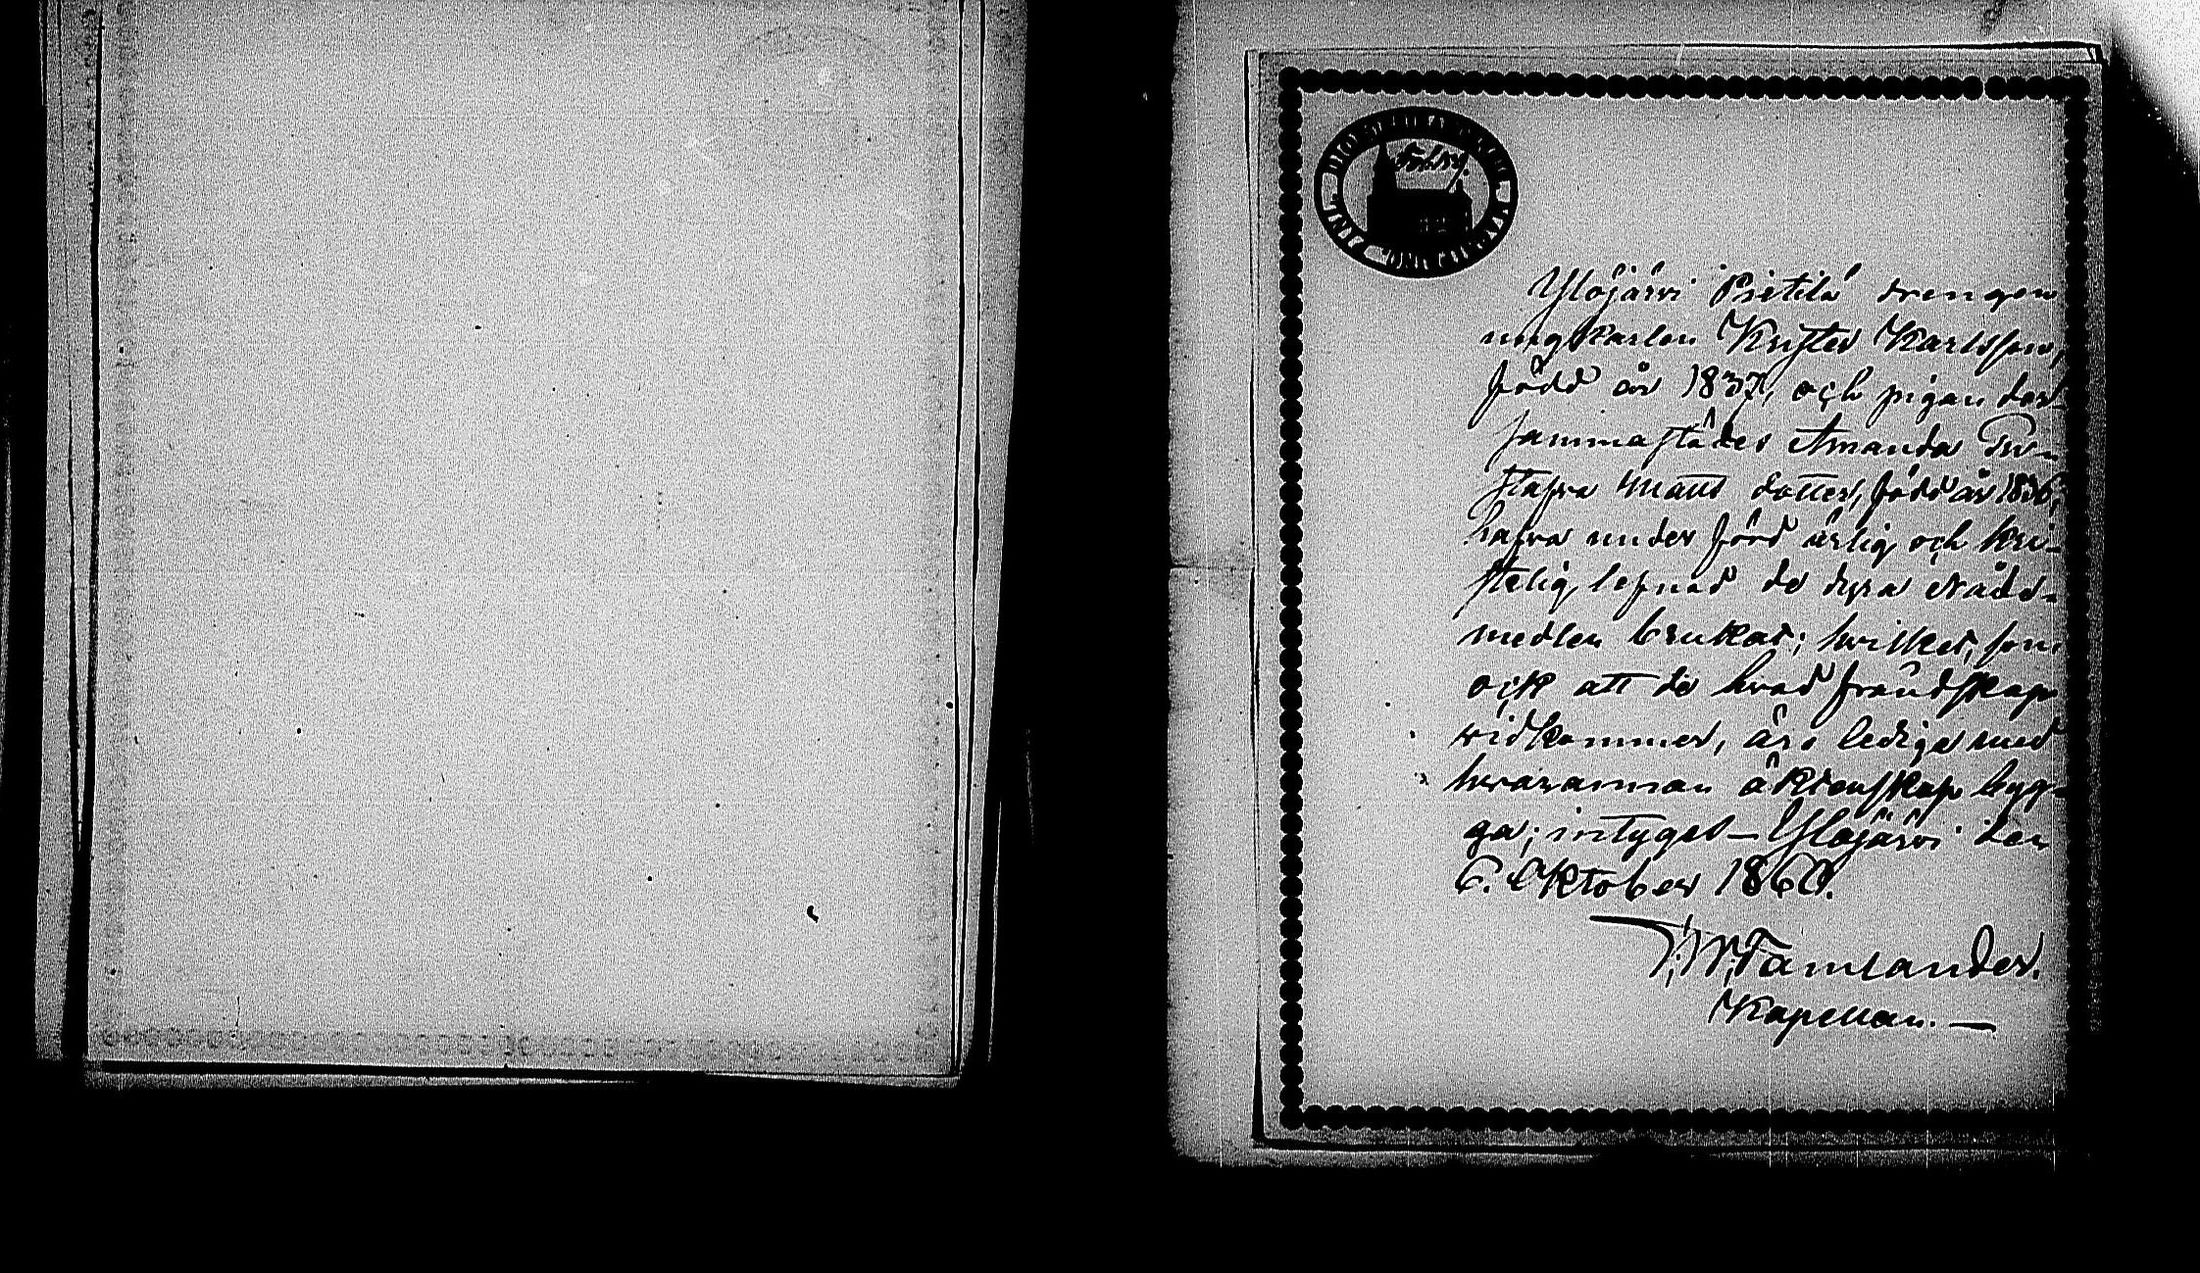 Ylöjärvi Pietilä drengen
ungkarlen Krister Karlsson,
född år 1837, och pigan der
sammastädes Amanda Gu-
stafva Matts dotter, född år 1836,
hafva under förd ärlig och kri-
stelig lefnad de dyra Nåde-
medlen brukat; hvilket, som
ock att de hvad frändskap
vidkommer, äro lediga med
hvarannan äktenskap byg-
ga; intygas – Ylöjärvi den
6. Oktober 1860.
Tamlander.
Kapellan. –